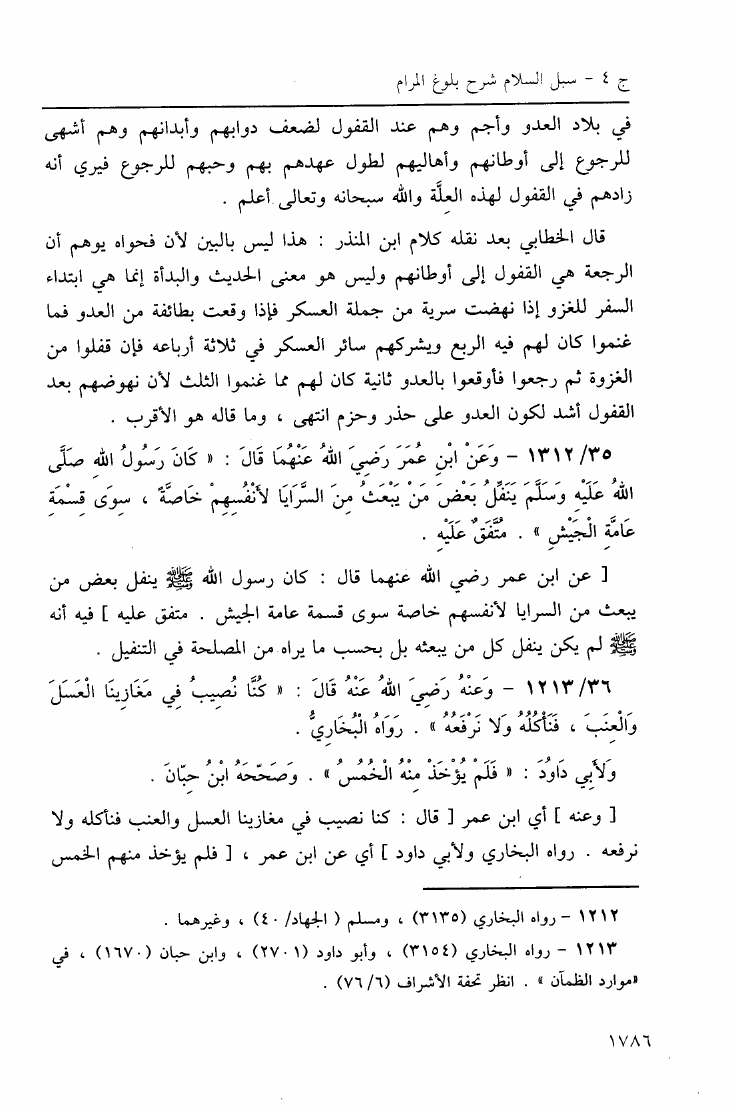 ج ٤ - سبل السلام شرح بلوغ المرام
في بلاد العدو وأجم وهم عند القفول لضعف دوابهم وأبدانهم وهم أشهى
للرجوع إلى أوطانهم وأهاليهم لطول عهدهم بهم وحبهم للرجوع فيري أنه
زادهم في القفول لهذه العلَّة والله سبحانه وتعالى أعلم .
قال الخطابي بعد نقله كلام ابن المنذر : هذا ليس بالبين لأن فحواه يوهم أن
الرجعة هي القفول إلى أوطانهم وليس هو معنى الحديث والبدأة إنما هي ابتداء
السفر للغزو إذا نهضت سرية من جملة العسكر فإذا وقعت بطائفة من العدو فما
غنموا كان لهم فيه الربع ويشركهم سائر العسكر في ثلاثة أرباعه فإن قفلوا من
الغزوة ثم رجعوا فأوقعوا بالعدو ثانية كان لهم مما غنموا الثلث لأن نهوضهم بعد
القفول أشد لكون العدو على حذر وحزم انتهى ، وما قاله هو الأقرب .
١٣١٢/٣٥ - وَعَنْ ابْنِ عُمَرَ رَضِيَ اللهُ عَنْهُمَا قَالَ : « كَانَ رَسُولُ اللهِ صَلَّى
اللهُ عَلَيْهِ وَسَلَّمَ يَنَفِّلُ بَعْضَ مَنْ يَبْعَثُ مِنَ السَّرَايَا لأَنْفُسِهِمْ خَاصَّةً ، سِوَى قِسْمَةِ
عَامَّةِ الْجَيْشِ » . مُتَّفَقٌ عَلَيْهِ .
[ عن ابن عمر رضي الله عنهما قال : كان رسول الله ﷺ ينفل بعض من
يبعث من السرايا لأنفسهم خاصة سوى قسمة عامة الجيش . متفق عليه ] فيه أنه
ﷺ لم يكن ينفل كل من يبعثه بل بحسب ما يراه من المصلحة في التنفيل .
١٢١٣/٣٦ - وَعَنْهُ رَضِيَ اللهُ عَنْهُ قَالَ : « كُنَّا نُصِيبُ فِي مَغَازِينَا الْعَسَلَ
وَالْعِنَبَ ، فَنَأْكُلُهُ وَلا نَرْفَعُهُ » . رَوَاهُ الْبُخَارِيُّ .
وَلأَبِي دَاوُدَ : « فَلَمْ يُؤْخَذْ مِنْهُ الْخُمُسُ » . وَصَحَّحَهُ ابْنُ حِبَّانَ .
[ وعنه ] أي ابن عمر [ قال : كنا نصيب في مغازينا العسل والعنب فنأكله ولا
نرفعه . رواه البخاري ولأبي داود ] أي عن ابن عمر ، [ فلم يؤخذ منهم الخمس
١٢١٢ - رواه البخاري (٣١٣٥) ، ومسلم ( الجهاد/ ٤٠) ، وغيرهما .
١٢١٣ - رواه البخاري (٣١٥٤) ، وأبو داود (٢٧٠١) ، وابن حبان (١٦٧٠) ، في
«موارد الظمآن » . انظر تحفة الأشراف (٧٦/٦) .
١٧٨٦